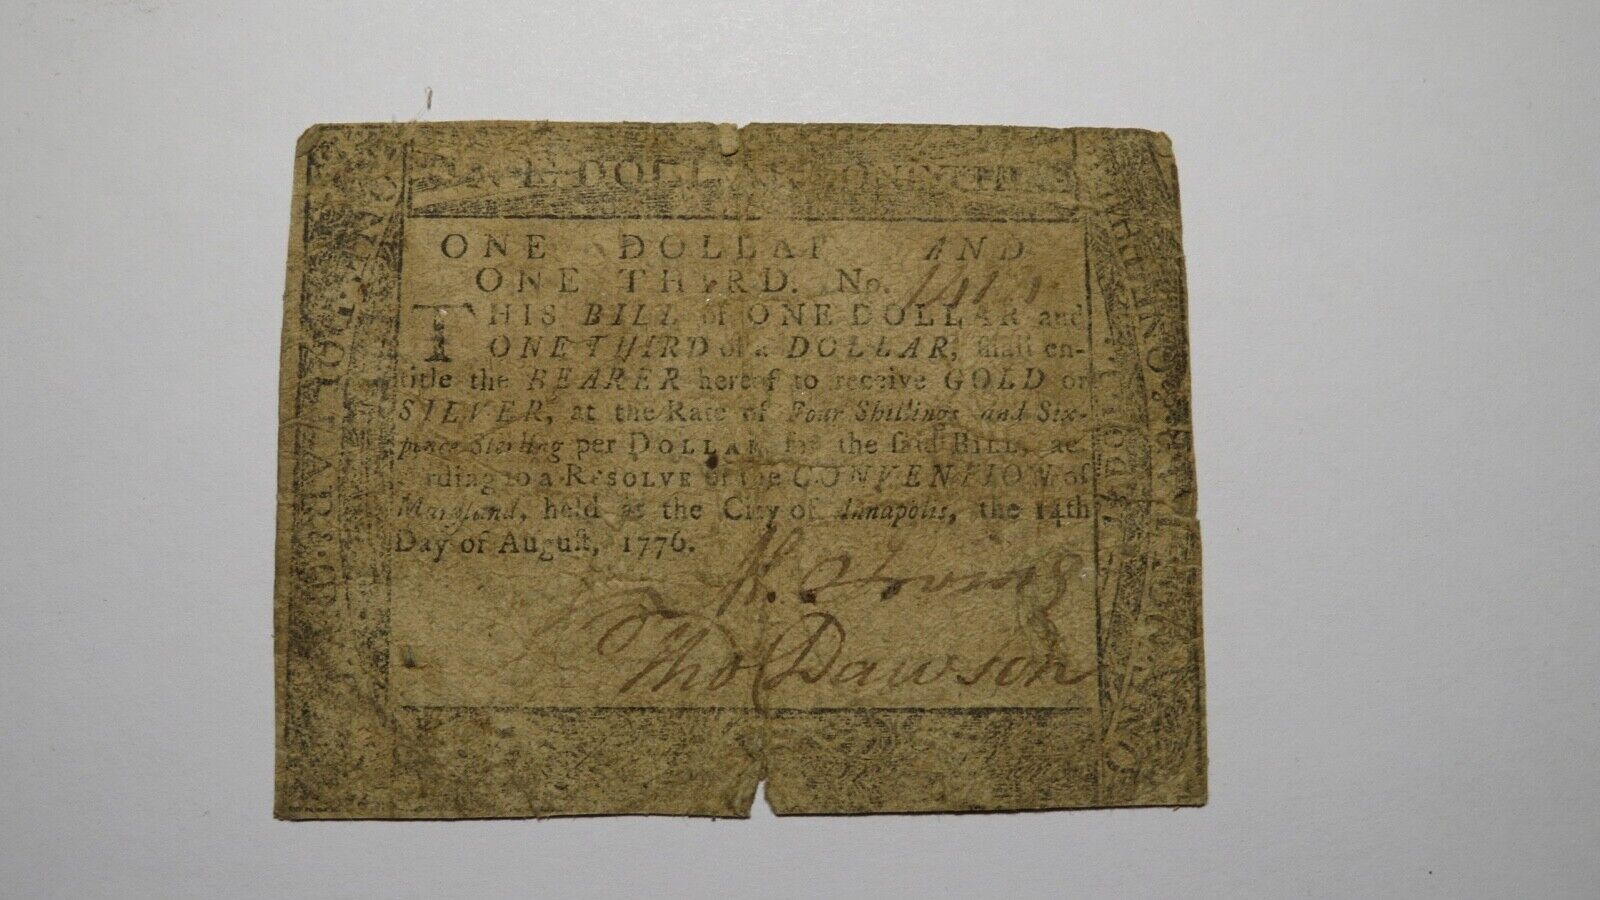 ONE DOLLAR AND
ONE THIRD. No.
THIS BILL of ONE DOLLAR and
ONE THIRD of a DOLLAR, ſhall en-
title the BEARER hereof to receive GOLD or
SILVER, at the Rate of Four Shillings and Six-
pence Sterling per DOLLAR for the ſaid BILL, ac-
cording to a RESOLVE of the CONVENTION of
Maryland, held at the City of Annapolis, the 14th
Day of Auguſt, 1776.
Tho Dawson